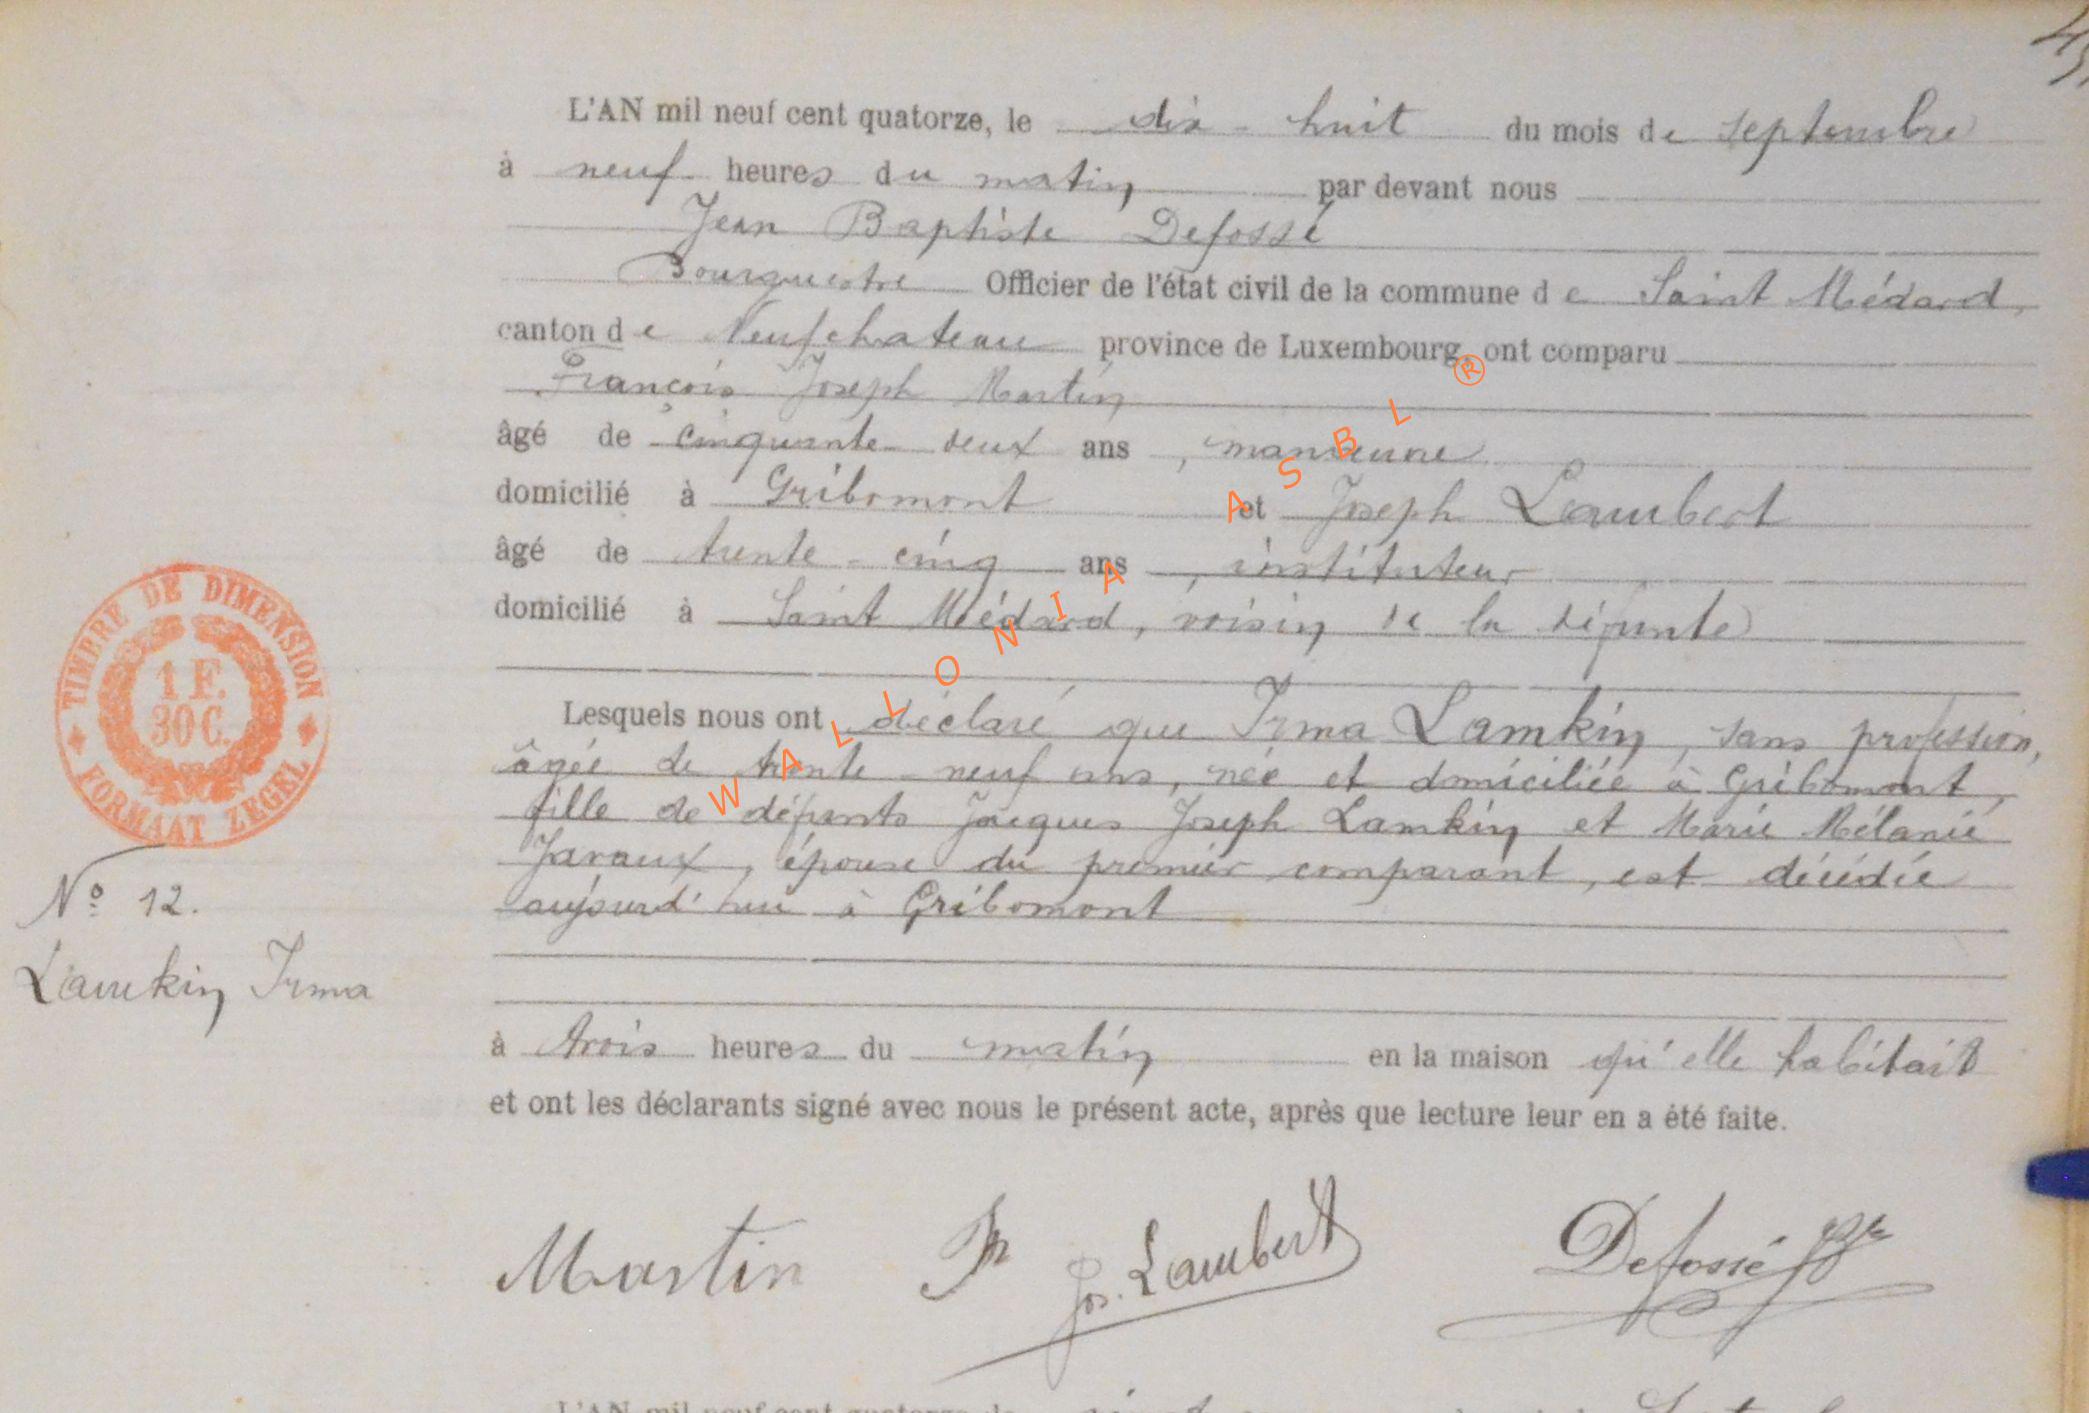 L'AN mil neuf cent quatorze, le dix-huit du mois de septembre
à neuf heures du matin par devant nous
Jean Baptiste Defossé
Bourgmestre Officier de l'état civil de la commune de Saint Médard,
canton de Neufchateau province de Luxembourg, ont comparu
François Joseph Martin
âgé de cinquante-deux ans, manœuvre
domicilié à Gribomont et Joseph Lambert
âgé de trente-cinq ans, instituteur
domicilié à Saint Médard, voisin de la défunte
Lesquels nous ont déclaré que Irma Lamkin, sans profession,
âgée de trente-neuf ans, née et domiciliée à Gribomont,
fille de défunts Jacques Joseph Lamkin et Marie Mélanie
Javaux, épouse du premier comparant, est décédée
aujourd'hui à Gribomont
à trois heures du matin en la maison qu'elle habitait
et ont les déclarants signé avec nous le présent acte, après que lecture leur en a été faite.
Martin Fr
Jos. Lambert
Defossé
TIMBRE DE DIMENSION
1 F.
30 C.
FORMAAT ZEGEL
No 12.
Lamkin Irma
WALLONIA ASBL ®